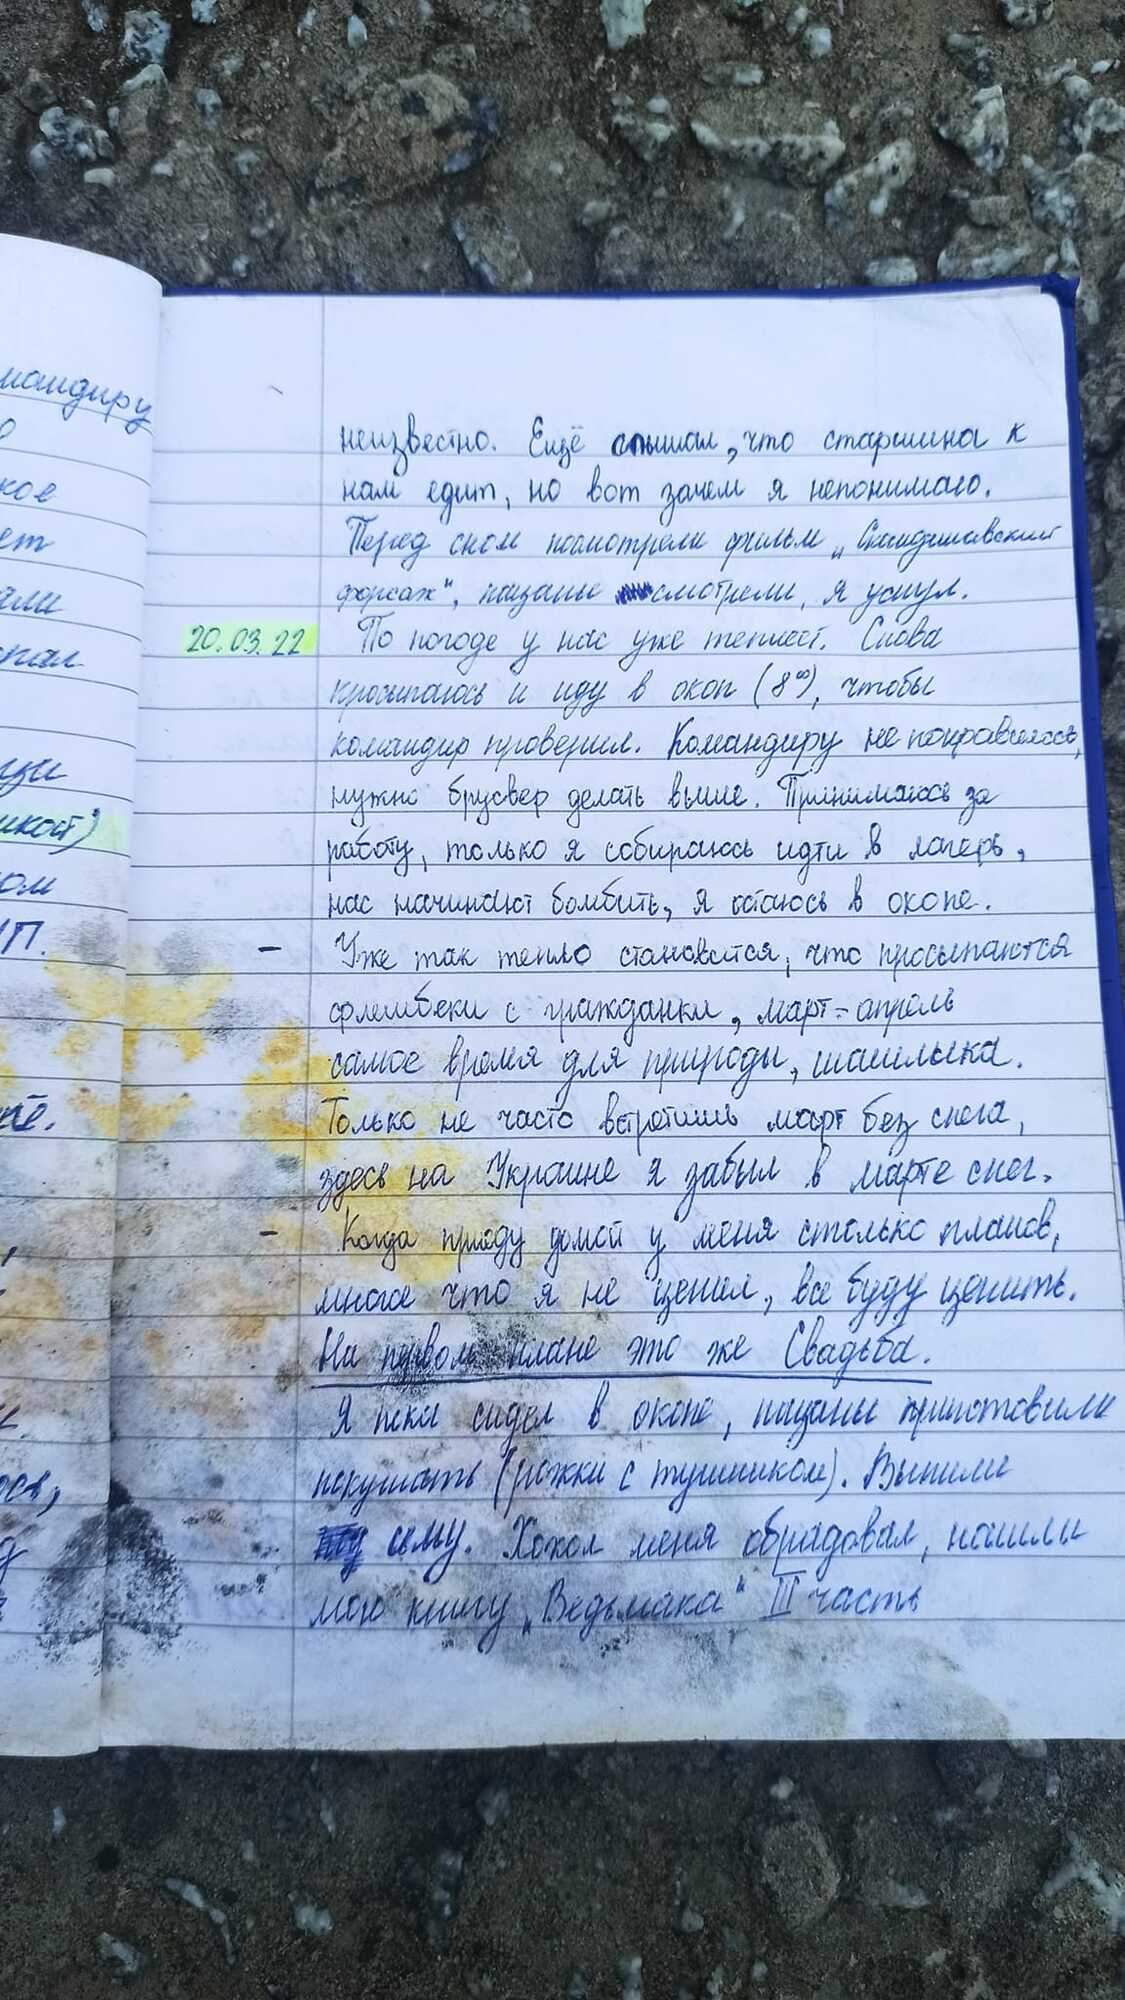 мандиру
кое
ет
али
спал
икой)
ом
неизвестно. Ещё слышал, что старшина к
нам едит, но вот зачем я непонимаю.
Перед сном посмотрели фильм „Скандинавский
форсаж“, пацаны смотрели, я уснул.
20.03.22 По погоде у нас уже теплеет. Снова
просыпаюсь и иду в окоп (8⁰⁰), чтобы
командир проверил. Командиру не понравилось,
нужно бруствер делать выше. Принимаюсь за
работу, только я собираюсь идти в лагерь,
нас начинают бомбить, я остаюсь в окопе.
- Уже так тепло становится, что просыпаются
флешбеки с гражданки, март-апрель
самое время для природы, шашлыка.
Только не часто встретишь март без снега,
здесь на Украине я забыл в марте снег.
- Когда приеду домой у меня столько планов,
многое что я не ценил, все буду ценить.
На первом плане это же Свадьба.
Я пока сидел в окопе, пацаны приготовили
покушать (рожки с тушняком). Выпили
сему. Хохол меня обрадовал, нашли
мою книгу „Ведьмака“ III часть